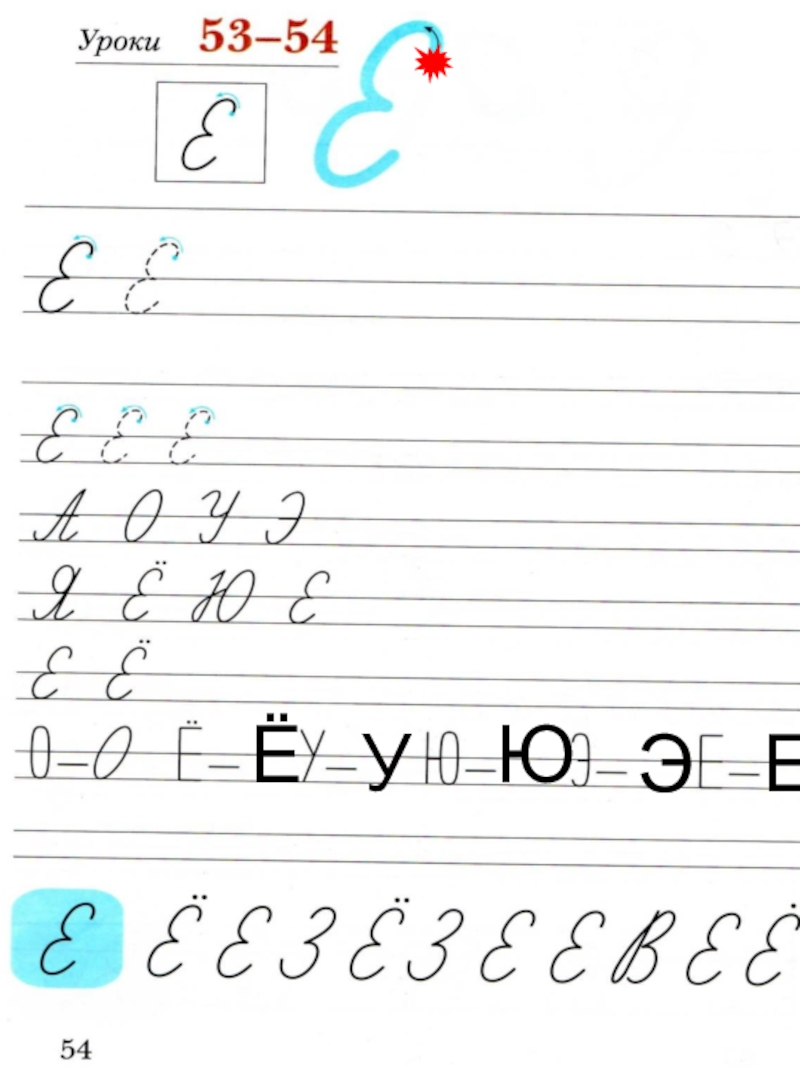 Уроки 53–54
Е
Е
Е Е
Е Е Е
А О У Э
Я Ё Ю Е
Е Ё
О–О Ё–Ё У–У Ю–Ю Э–Э Е–Е
Е Ё Е З Ё З Е Е В Е Ё
54